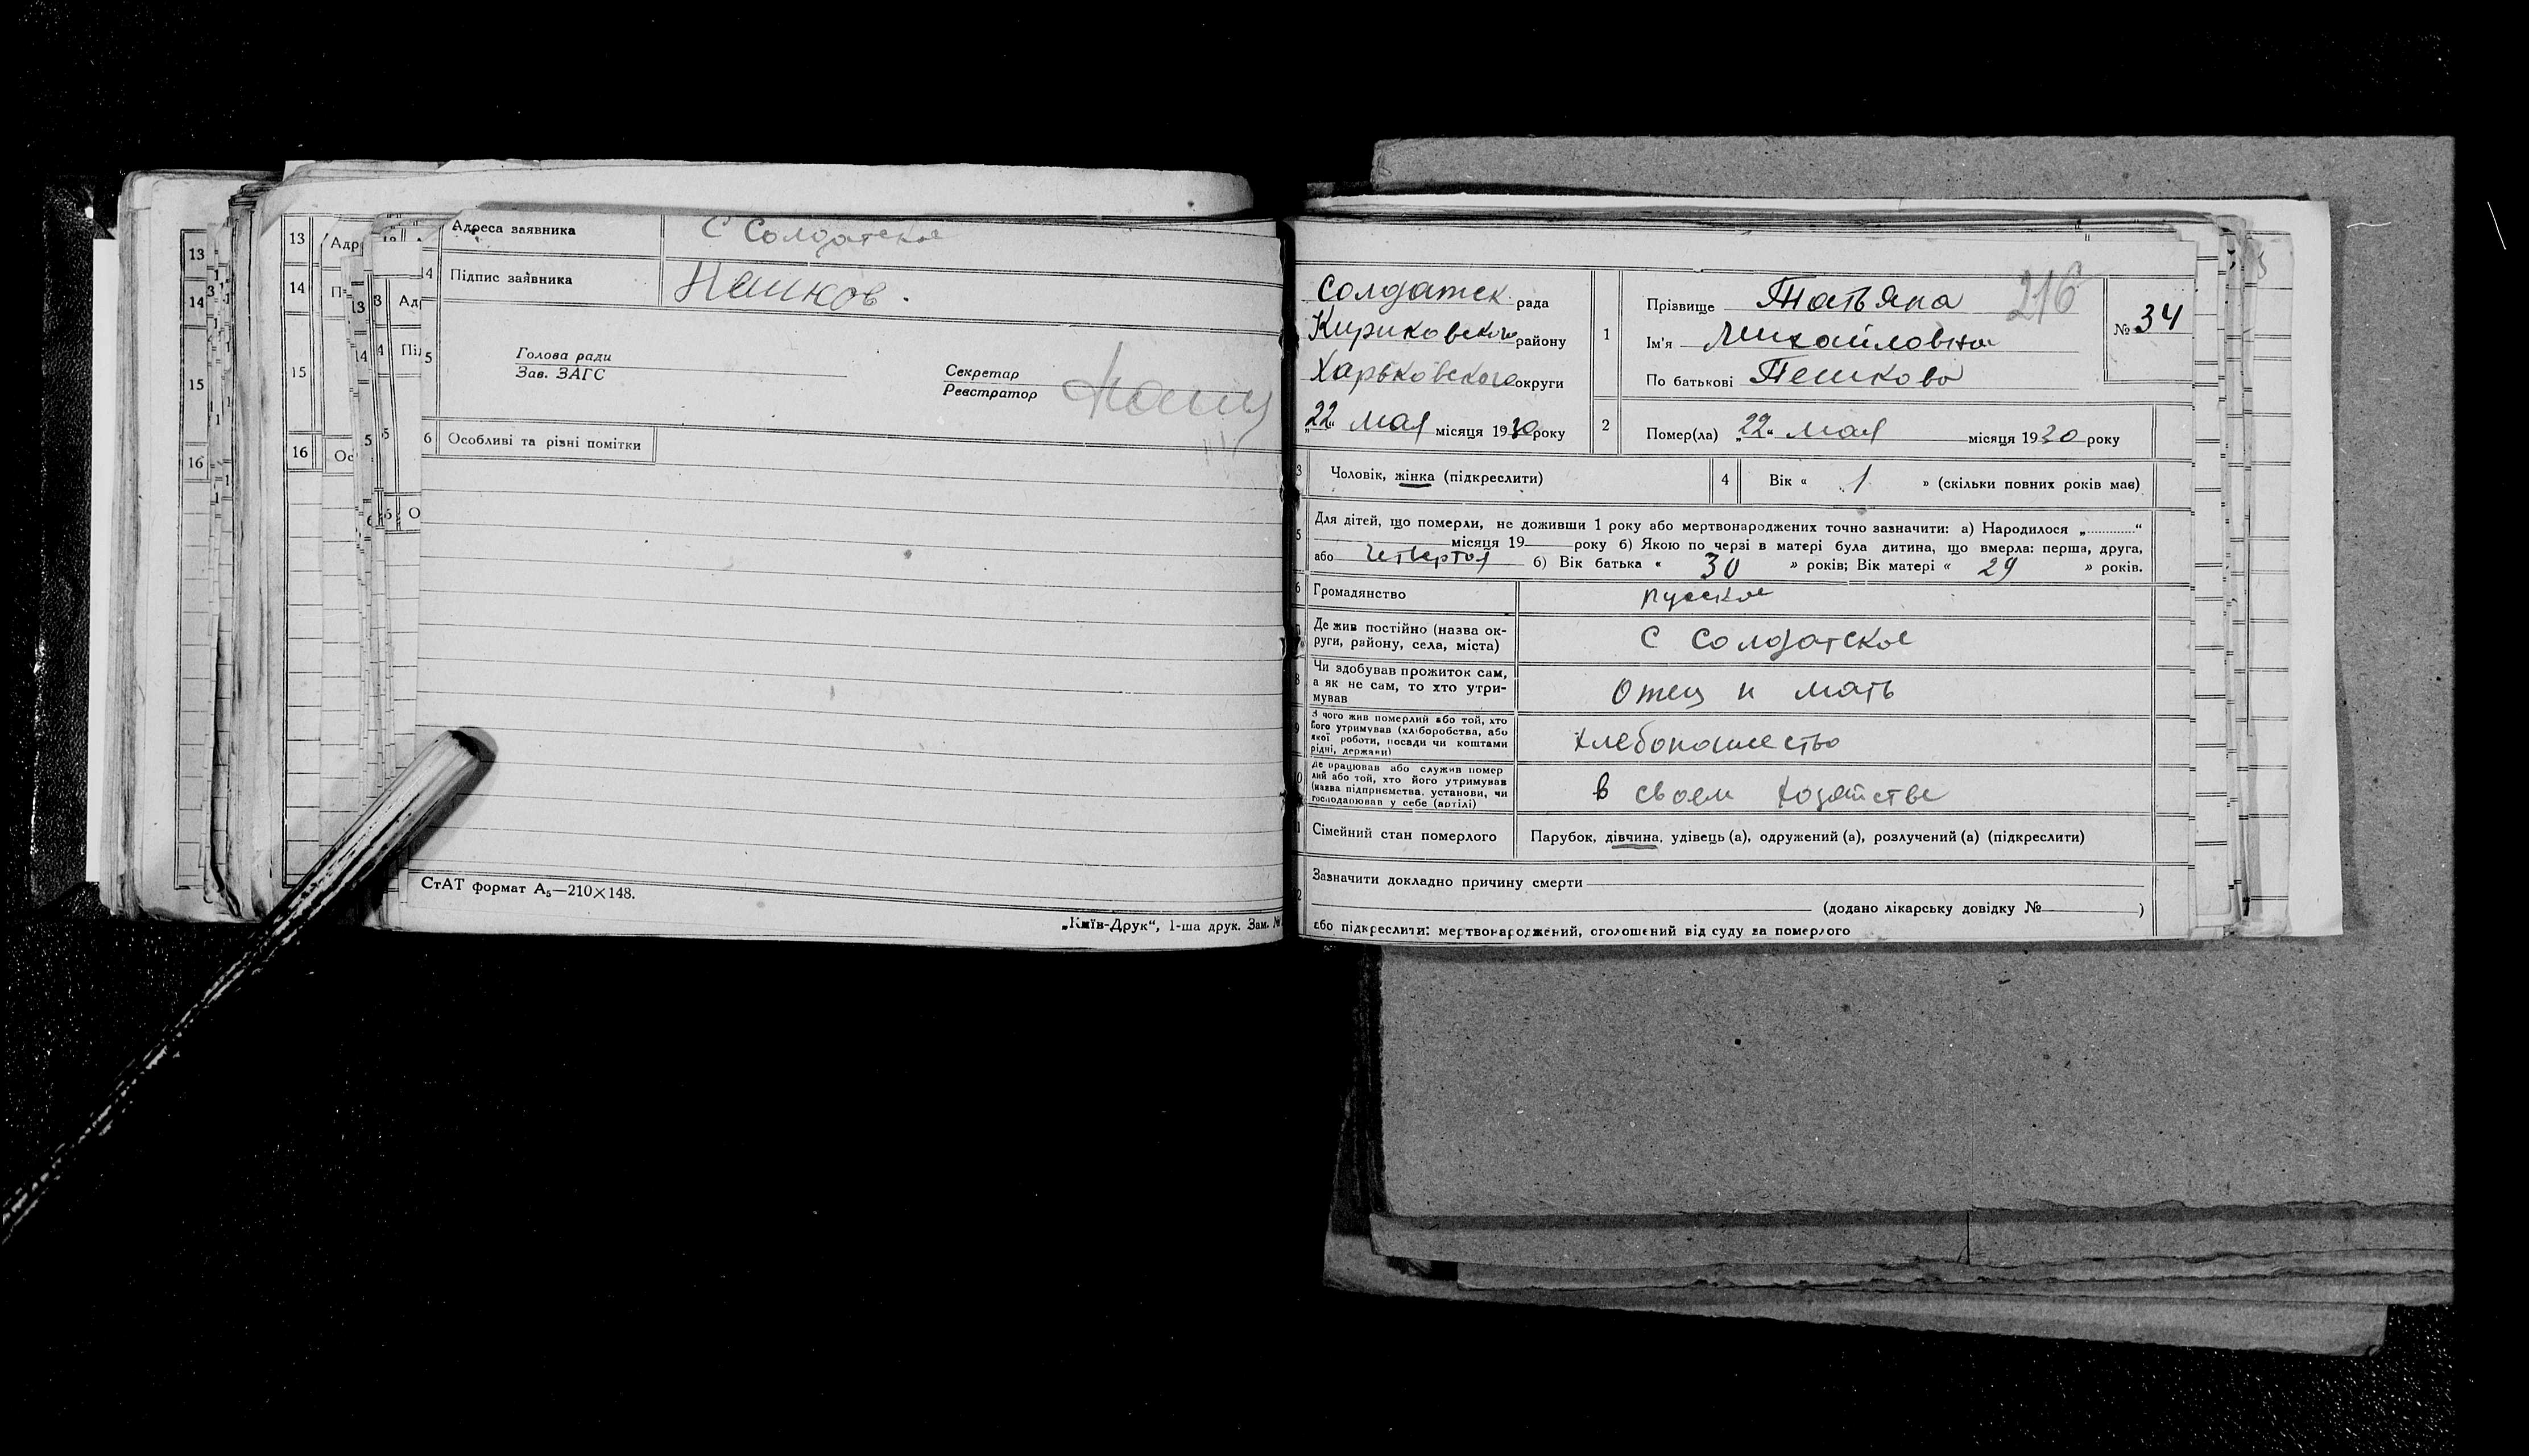 13
14
15
16
13
14
15
16
Адр
Адреса заявника С Солдатское
14 Підпис заявника Пешков.
5 Голова ради
Зав. ЗАГС
Секретар
Реєстратор
6 Особливі та різні помітки
СтАТ формат А₅—210×148.
„Київ-Друк“, 1-ша друк. Зам. №
Солдатск рада
Кириковского району
Харьковского округи
„22“ мая місяця 1930 року
1
Прізвище Татьяна
Ім'я Михайловна
По батькові Пешкова
216
№ 34
2 Помер(ла) „22“ мая місяця 1930 року
3 Чоловік, жінка (підкреслити)
4 Вік « 1 » (скільки повних років мав)
5 Для дітей, що померли, не доживши 1 року або мертвонароджених точно зазначити: а) Народилося „............“
місяця 19 року б) Якою по черзі в матері була дитина, що вмерла: перша, друга,
або четвертая б) Вік батька « 30 » років; Вік матері « 29 » років.
6 Громадянство русское
Де жив постійно (назва ок-
руги, району, села, міста)
С Солдатское
8 Чи здобував прожиток сам,
а як не сам, то хто утри-
мував
Отец и мать
9 З чого жив померлий або той, хто
його утримував (хліборобства, або
якої роботи, посади чи коштами
рідні, держави)
хлебопашество
Де працював або служив помер
лий або той, хто його утримував
(назва підприємства, установи, чи
господарював у себе (артілі)
в своем хозяйстве
Сімейний стан померлого Парубок, дівчина, удівець (а), одружений (а), розлучений (а) (підкреслити)
Зазначити докладно причину смерти
(додано лікарську довідку № )
або підкреслити: мертвонароджений, оголошений від суду за померлого